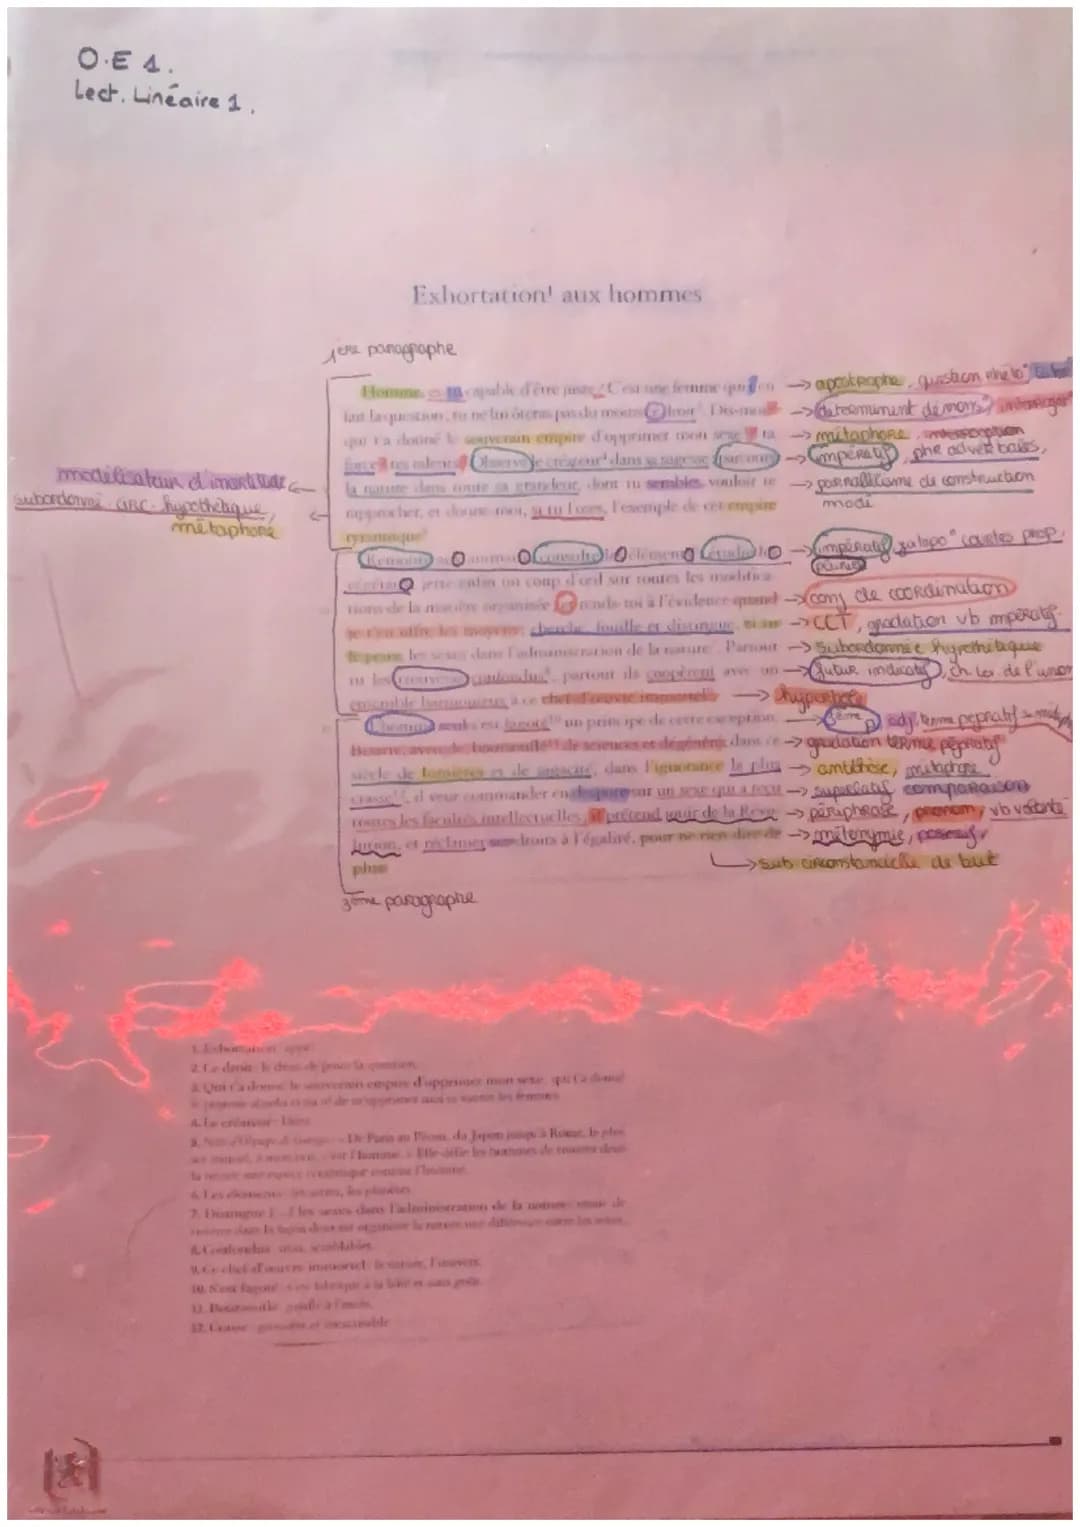 O.E 1.
Lect. Linéaire 1.
Exhortation¹ aux hommes
1ère paragraphe
Homme, es-tu capable d'être juste? C'est une femme qui t'en
fait la question, tu ne lui ôteras pas du moins ce droit². Dis-moi
qui t'a donné le souverain empire d'opprimer mon sexe ? ta
force ? tes talents ? Observe le créateur⁴ dans sa sagesse, parcours
la nature dans toute sa grandeur, dont tu sembles vouloir te
rapprocher, et donne-moi, si tu l'oses, l'exemple de cet empire
tyrannique⁵
Remonte aux animaux, consulte les éléments, étudie les
végétaux, jette enfin un coup d'œil sur toutes les modifica-
tions de la matière organisée et rends-toi à l'évidence quand
je t'en offre les moyens; cherche, fouille et distingue, si tu
le peux, les sexes dans l'administration de la nature⁷. Partout
tu les trouveras confondus⁸, partout ils coopèrent avec un
ensemble harmonieux à ce chef-d'œuvre immortel⁹
L'homme seul s'est fagoté¹⁰ un principe de cette exception.
Bizarre, aveugle, boursouflé¹¹ de sciences et dégénéré, dans ce
siècle de lumières et de sagacité, dans l'ignorance la plus
crasse¹², il veut commander en despote sur un sexe qui a reçu
toutes les facultés intellectuelles, il prétend jouir de la Révo-
lution, et réclamer ses droits à l'égalité, pour ne rien dire de
plus
3ème paragraphe
modélisateur d'incertitude
subordonné circ. hypothétique,
métaphore
→ apostrophe, question rhéto°
→ déterminent démons°, interrogat°
→ métaphore, interrogation
→ impératif, phr adverbales,
→ parrallélisme de construction
mode
→ impératif, juxtapo° courtes prop.
pluriel
→ conj de coordination
→ CCT, gradation vb impératif
→ Subordonnée hypothétique
→ futur indicatif, ch lex de l'union
→ hyperbole
→ 3ème p, adj, terme péjoratif
→ gradation terme péjoratif
→ antithèse, métaphore
→ superlatif, comparaison
→ périphrase, pronom, vb volonté
→ métonymie, possessif
→ sub circonstancielle de but
1. Exhortation: appel
2. Ce droit: le droit de poser la question.
3. Qui t'a donné le souverain empire d'opprimer mon sexe: qui t'a donné
4. Le créateur: Dieu
De Paris au Pérou, du Japon jusqu'à Rome, le plus
6. Les éléments: les astres, les planètes
7. Distingue [...] les sexes dans l'administration de la nature: essaie de
trouver dans la façon dont est organisée la nature une différence entre les sexes.
8. Confondus: unis, semblables
9. Ce chef-d'œuvre immortel: la nature, l'univers.
11. Boursouflé: gonflé
12. Crasse: grossière et inexcusable